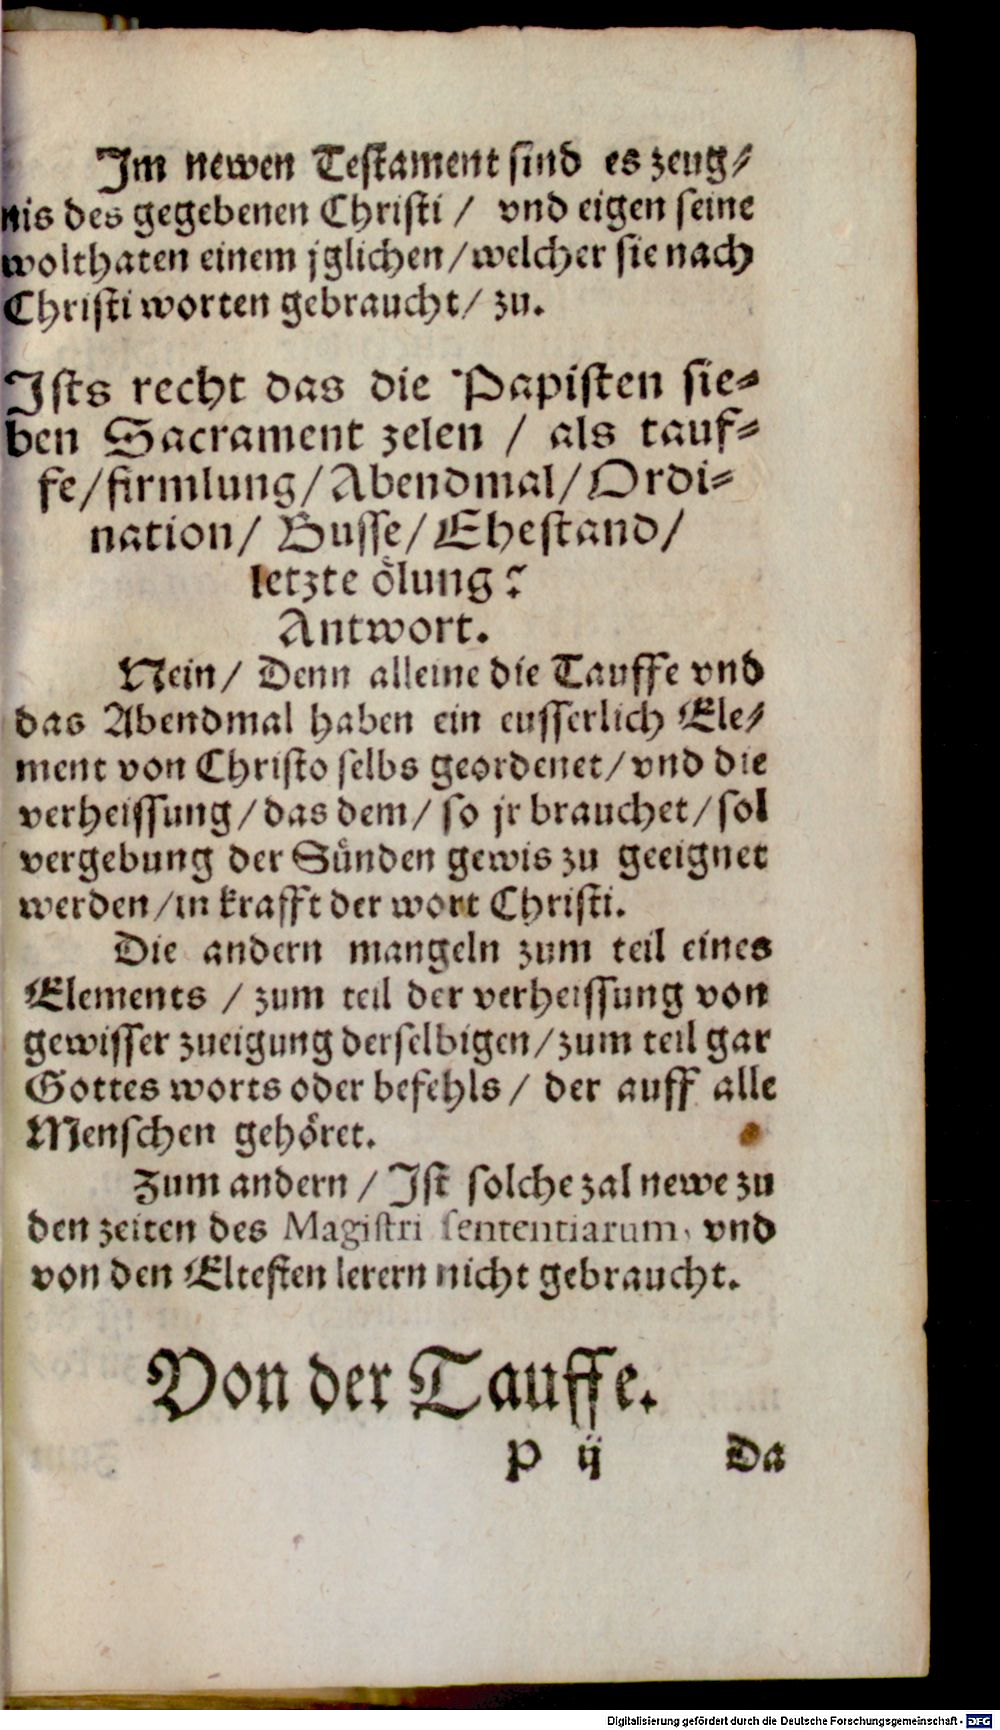 Im newen Testament sind es zeug⸗
nis des gegebenen Christi / vnd eigen seine
wolthaten einem jglichen / welcher sie nach
Christi worten gebraucht / zu.
Ists recht das die Papisten sie⸗
ben Sacrament zelen / als tauf⸗
fe / firmlung / Abendmal / Ordi⸗
nation / Busse / Ehestand /
letzte ölung?
Antwort.
Nein / Denn alleine die Tauffe vnd
das Abendmal haben ein eusserlich Ele⸗
ment von Christo selbs geordenet / vnd die
verheissung / das dem / so jr brauchet / sol
vergebung der Sünden gewis zu geeignet
werden / in krafft der wort Christi.
Die andern mangeln zum teil eines
Elements / zum teil der verheissung von
gewisser zueigung derselbigen / zum teil gar
Gottes worts oder befehls / der auff alle
Menschen gehöret.
Zum andern / Ist solche zal newe zu
den zeiten des Magistri sententiarum, vnd
von den Eltesten lerern nicht gebraucht.
Von der Tauffe.
P ij Da
Digitalisierung gefördert durch die Deutsche Forschungsgemeinschaft - DFG